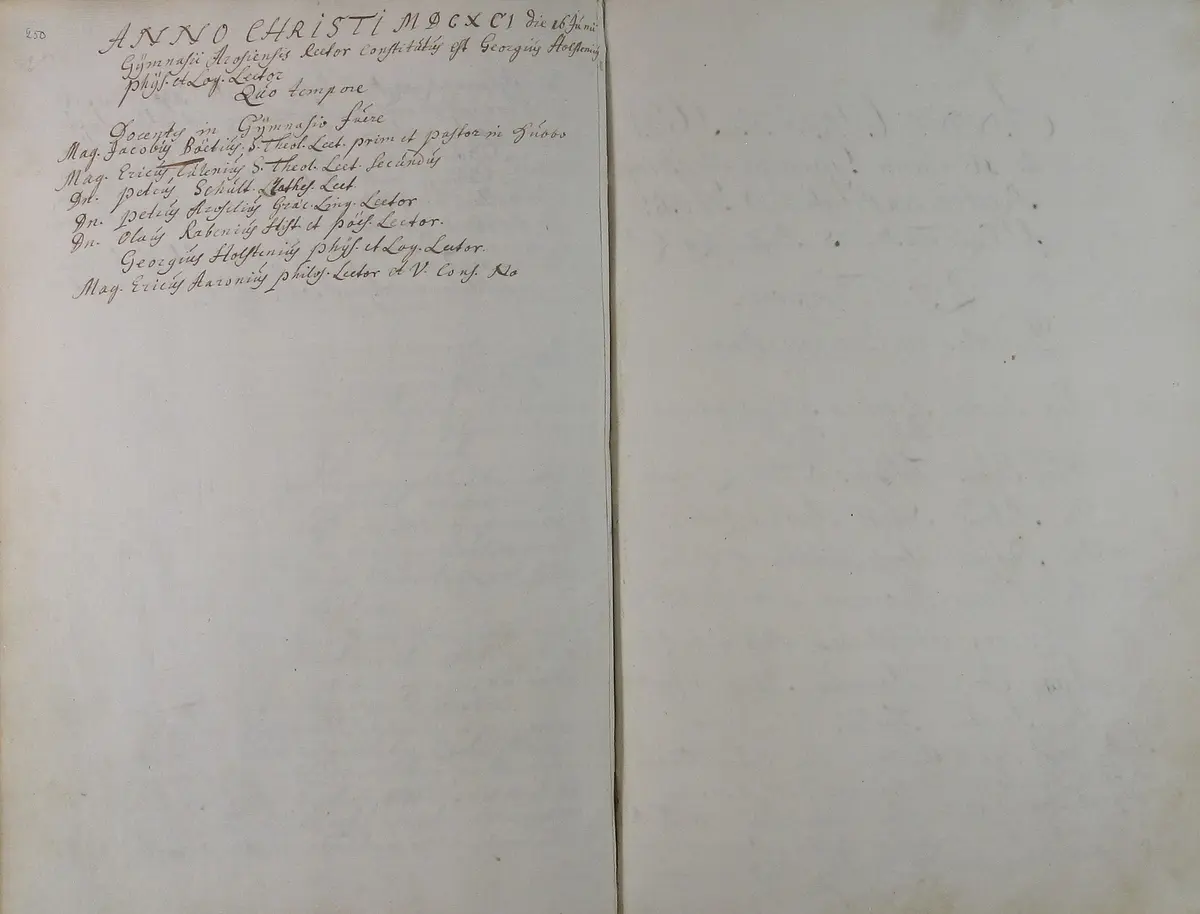 250
ANNO CHRISTI MDCXCI die 16 Junii
Gÿmnasii Arosiensis Rector Constitutus est Georgius Holstenius
Phÿs. et Log. Lector
Quo tempore
Docentes in Gÿmnasio fuere
Mag. Jacobus Boëtius, S. Theol. Lect. prim et pastor in
Mag. Ericus Calenius S. Theol. Lect. Secundus
Dn. Petrus Schult. Mathes. Lect.
Dn. Petrus Aroselius Græc. Ling. Lector
Dn. Olaus Rabenius Hist et Poës. Lector.
Georgius Holstenius Phÿs. et Log. Lector.
Mag. Ericus Aaronius philos. Lector et V. Cons. No